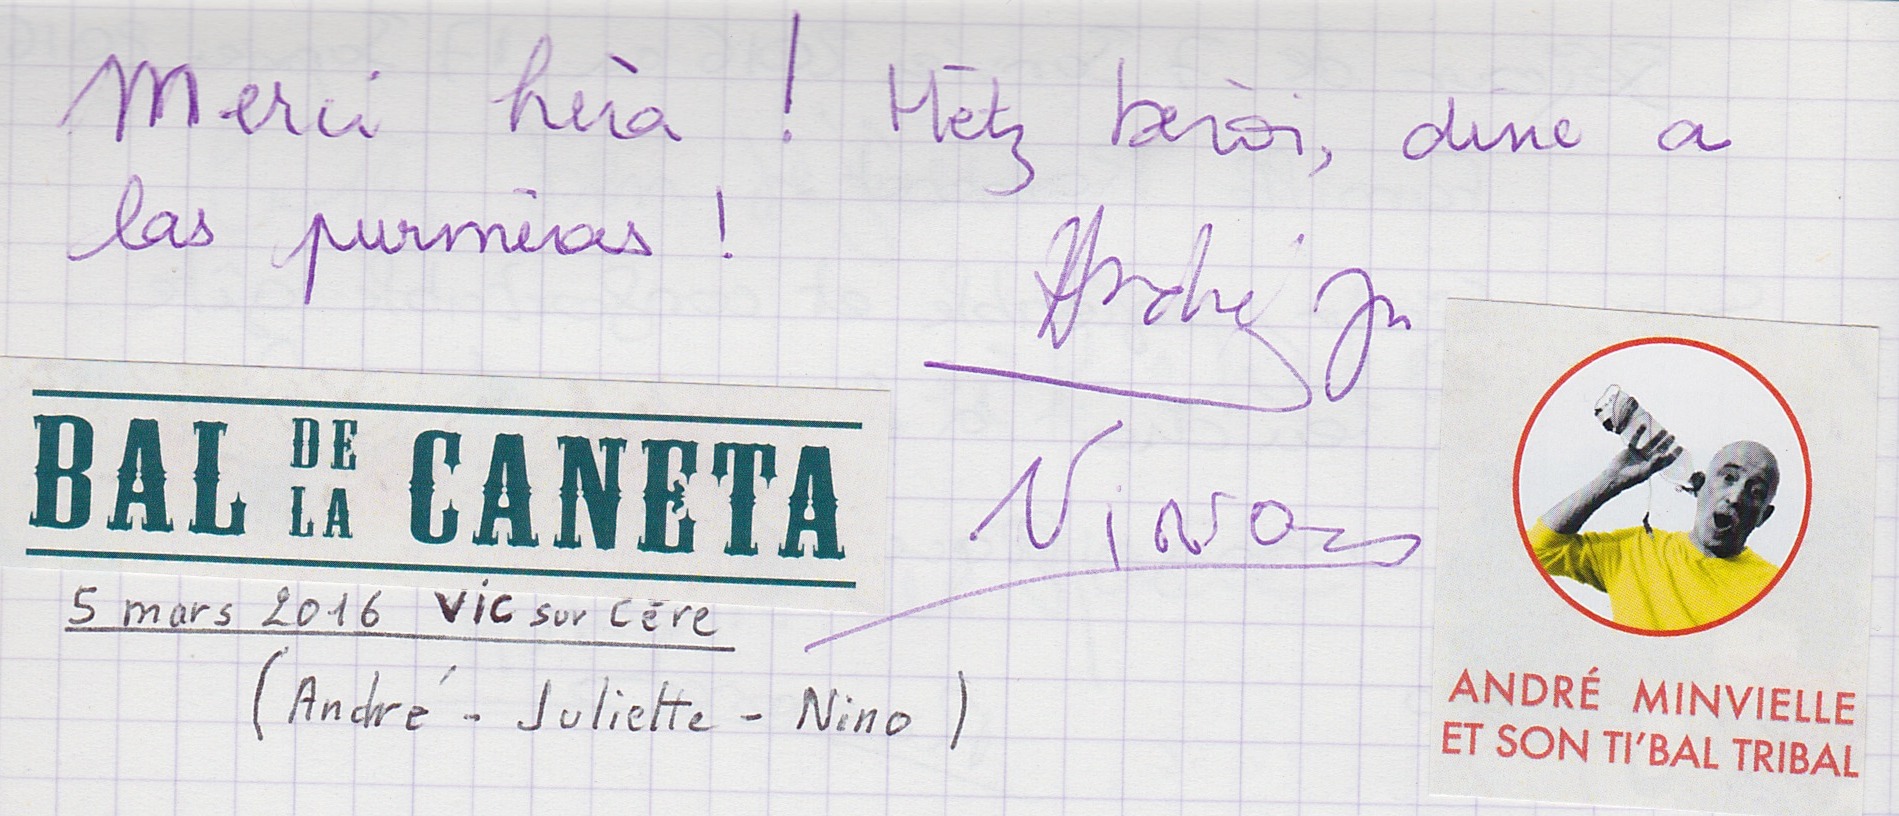 Merci hèra ! Hètz beròi, dinc a
las purmèras !
André Jn
Nino
BAL DE LA CANETA
5 mars 2016 Vic sur Cère
(André - Juliette - Nino)
ANDRÉ MINVIELLE
ET SON TI'BAL TRIBAL